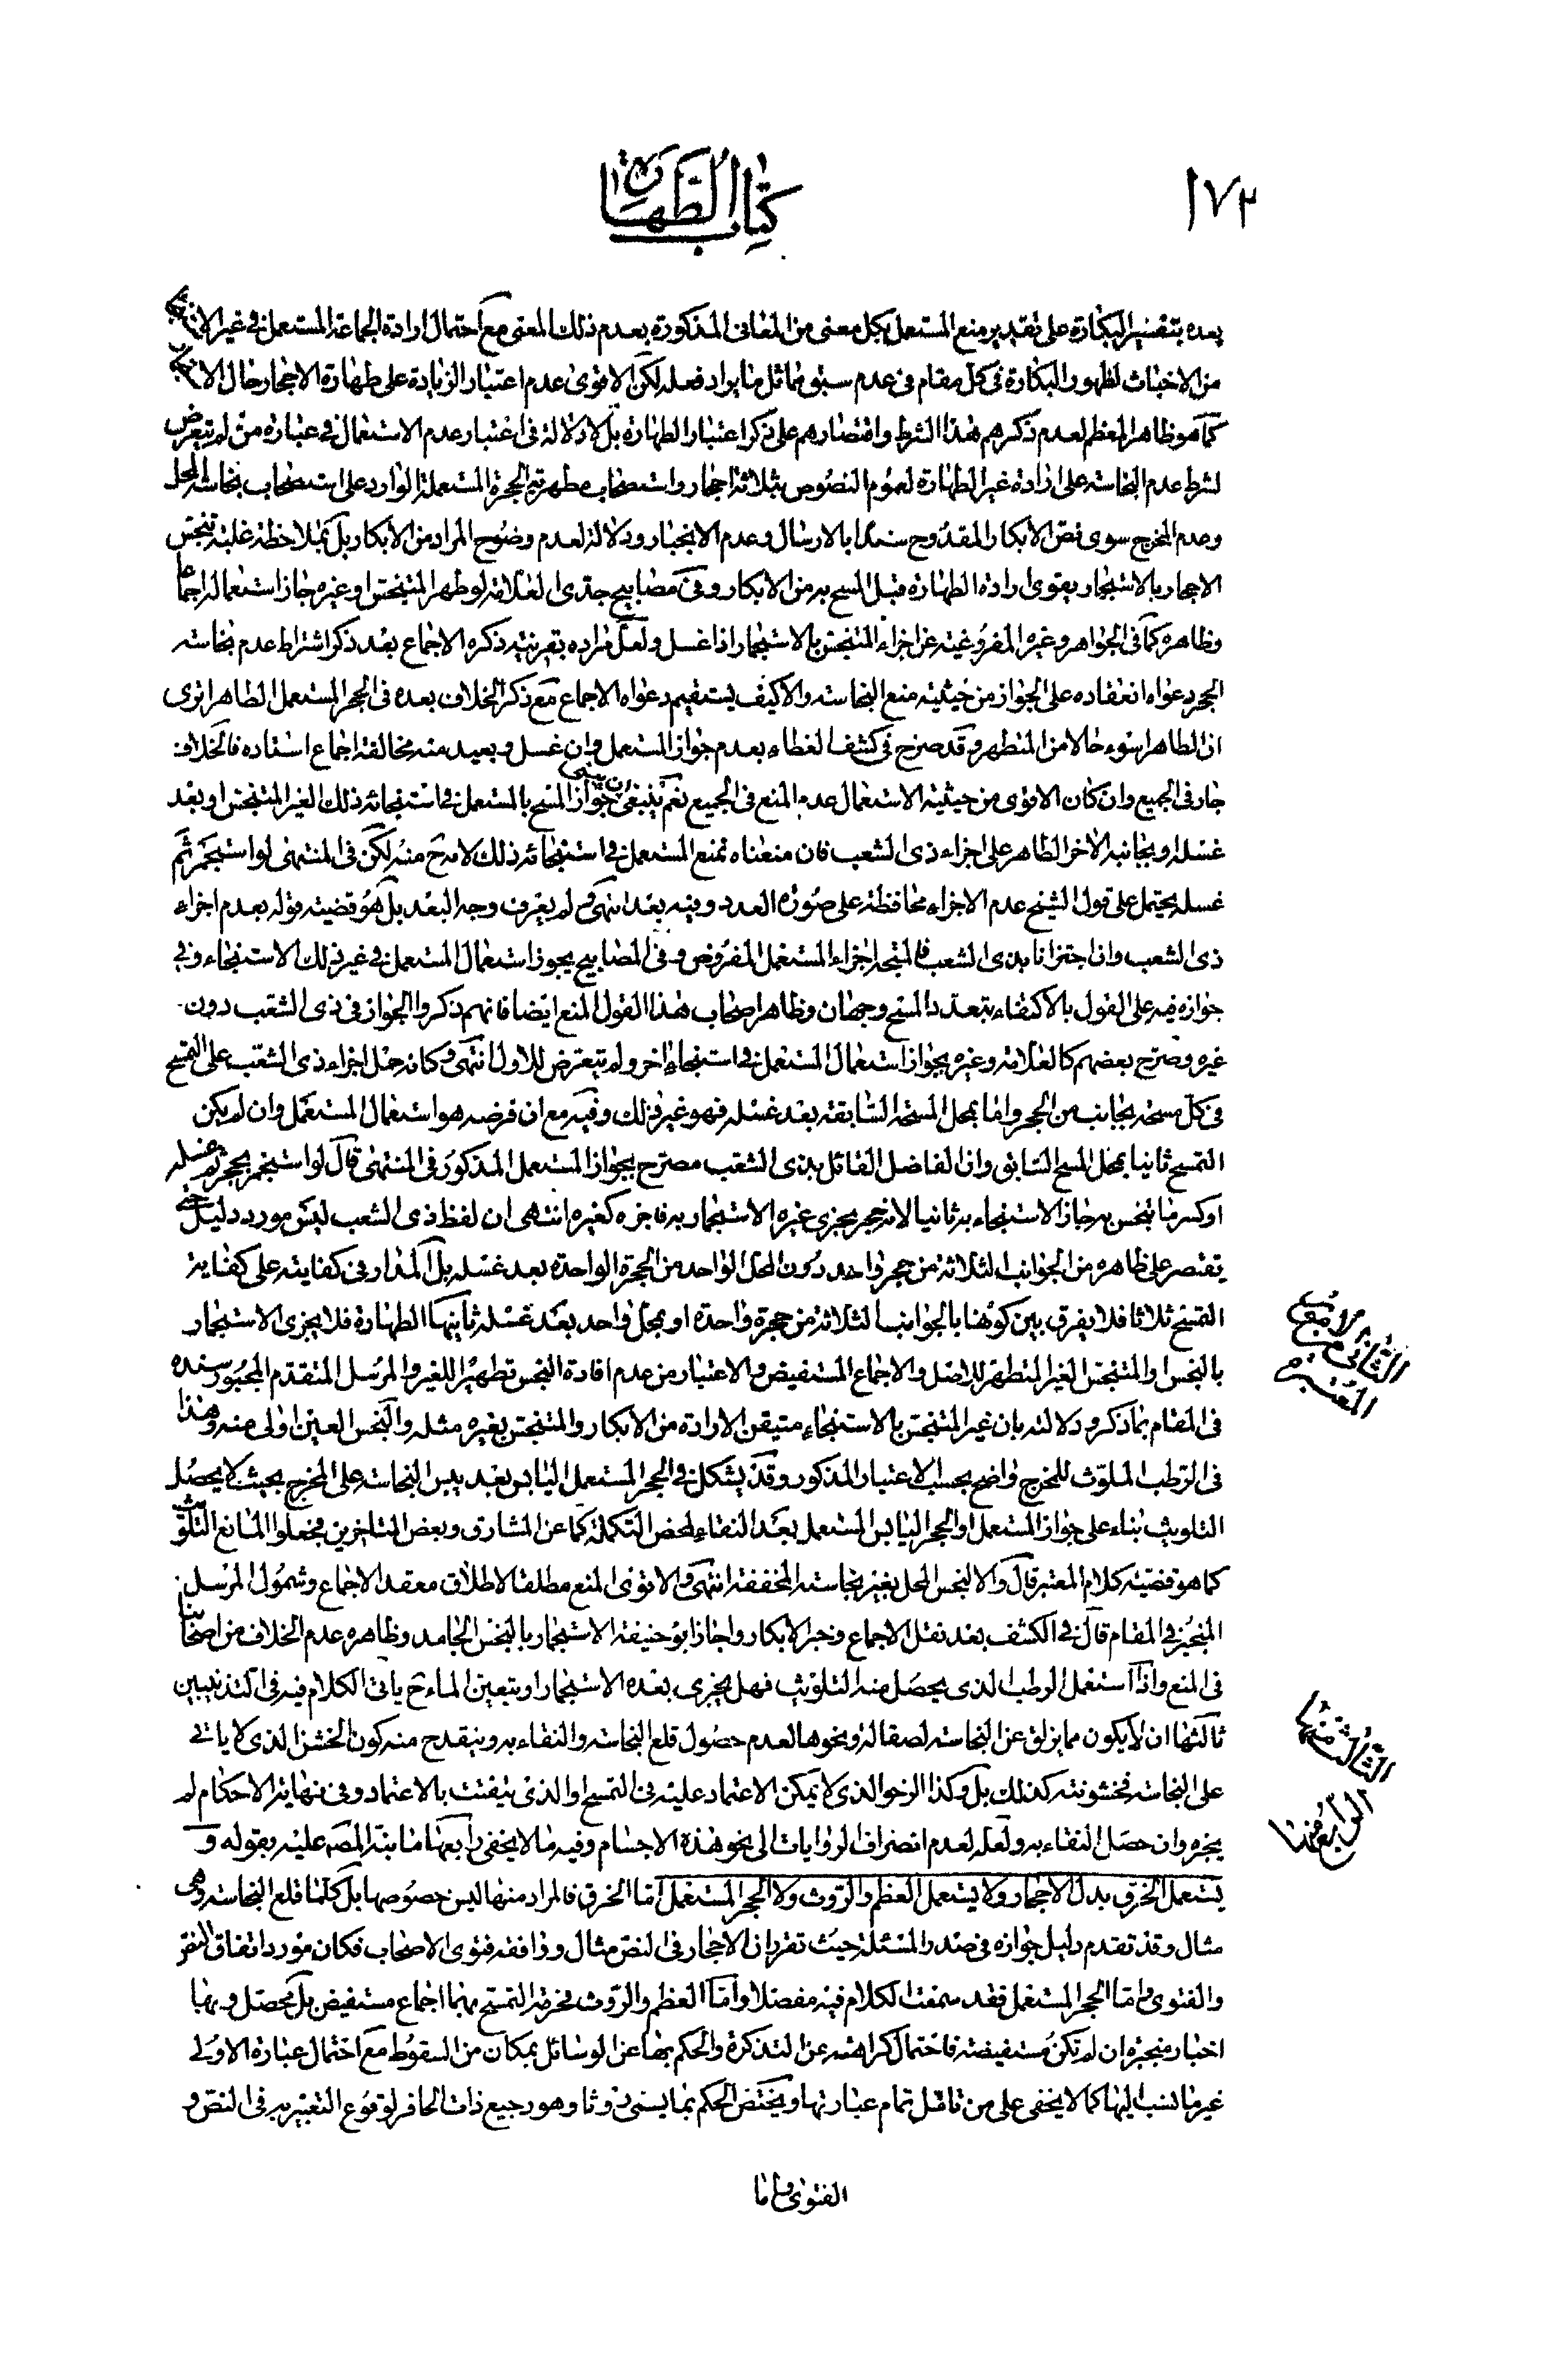 ١٧٢
كتاب الطهارة
بعده بتفسير البكارة على تقدير منع المستعمل بكل معنى من المعانى المذكورة بعدم ذلك المعنى مع احتمال ارادة الجماعة المستعمل فى غير
من الاخباث لظهور البكارة فى كل مقام فى عدم سبق مماثل ما يراد فعله لكن الاقوى عدم اعتبار الزيادة على طهارة الاحجار حال
كما هو ظاهر المعظم لعدم ذكرهم هذا الشرط واقتصارهم على ذكر اعتبار الطهارة بل لا دلالة فى اعتبار عدم الاستعمال فى عبارة من لم يتعرض
لشرط عدم النجاسة على ارادة غير الطهارة لعموم النصوص بثلاثة احجار واستصحاب مطهرية الحجرة المستعملة الوارد على استصحاب نجاسة المحل
وعدم المخرج سوى نص الابكار المقدوح سندا بالارسال وعدم الانجبار ودلالة لعدم وضوح المراد من الابكار بل بملاحظة غلبة تنجس
الاحجار بالاستجمار يقوى ارادة الطهارة قبل المسح به من الابكار وفى مصابيح جدى العلامة لو طهر المتنجس او غيره جاز استعماله اجماعا
وظاهره كما فى الجواهر وغيره المفروغية عن اجزاء المتنجس بالاستجمار اذا غسل ولعل مراده بقرينة ذكره الاجماع بعد ذكر اشتراط عدم نجاسة
الحجر دعواه انعقاده على الجواز من حيثية منع النجاسة والا كيف يستقيم دعواه الاجماع مع ذكر الخلاف بعده فى الحجر المستعمل الطاهر اترى
ان الطاهر اسوء حالا من المتطهر وقد صرح فى كشف الغطاء بعدم جواز المستعمل وان غسل وبعيد منه مخالفة اجماع استاده فالخلاف
جار فى الجميع وان كان الاقوى من حيثية الاستعمال عدم المنع فى الجميع نعم ينبغى ان يبنى جواز المسح بالمستعمل فى استنجائه ذلك الغير المتنجس او بعد
غسله او بجانبه الاخر الطاهر على اجزاء ذى الشعب فان منعناه نمنع المستعمل فى استنجائه ذلك لامرح منه لكن فى المنتهى لو استجمر ثم
غسله يحتمل على قول الشيخ عدم الاجزاء محافظة على صورة العدد وفيه بعد انتهى ولم يعرف وجه البعد بل هو قضية قوله بعدم اجزاء
ذى الشعب وان اجتزانا بذى الشعب فالمتجه اجزاء المستعمل المفروض وفى المصابيح يجوز استعمال المستعمل فى غير ذلك الاستنجاء وفى
جوازه فيه على القول بالاكتفاء بتعدد المسح وجهان وظاهر اصحاب هذا القول المنع ايضا فانهم ذكروا الجواز فى ذى الشعب دون
غيره وصرح بعضهم كالعلامة وغيره بجواز استعمال المستعمل فى استنجاء اخر ولم يتعرض للاول انتهى وكانه حمل اجزاء ذى الشعب على التمسح
فى كل مسحة بجانب من الحجر واما بمحل المسحة السابقة بعد غسله فهو غير ذلك وفيه مع ان فرضه هو استعمال المستعمل وان لم يكن
التمسح ثانيا بمحل المسح السابق وان الفاضل القائل بذى الشعب مصرح بجواز المستعمل المذكور فى المنتهى قال لو استجمر بحجر ثم غسله
او كسر ما تنجس به جاز الاستنجاء به ثانيا لانه حجر يجزى غيره الاستجمار به فاجزه كغيره انتهى ان لفظ ذى الشعب ليس مورد دليل حتى
يقتصر على ظاهره من الجوانب الثلاثة من حجر واحد دون المحل الواحد من الحجرة الواحدة بعد غسله بل المدار فى كفايته على كفاية
التمسح ثلاثا فلا يفرق بين كونها بالجوانب الثلاثة من حجرة واحدة او بمحل واحد بعد غسله ثانيها الطهارة فلا يجزى الاستجمار
بالنجس والمتنجس الغير المتطهر للاصل والاجماع المستفيض والاعتبار من عدم افادة النجس تطهيرا للغير والمرسل المتقدم المجبور سنده
فى المقام بما ذكر ودلالته بان غير المتنجس بالاستنجاء متيقن الارادة من الابكار والمتنجس بغيره مثله والنجس العين اولى منه وهذا
فى الرطب الملوث للمخرج واضح بحسب الاعتبار المذكور وقد يشكل فى الحجر المستعمل اليابس بعد يبس النجاسة على المخرج بحيث لا يحصل
التلويث بناء على جواز المستعمل او الحجر اليابس المستعمل بعد النقاء لمحض التكملة كما عن المشارق وبعض المتاخرين فجعلوا المانع التلوث
كما هو قضية كلام المعتبر قال والا لنجس المحل بغير نجاسته المخففة انتهى والاقوى المنع مطلقا لاطلاق معقد الاجماع وشمول المرسل
المنجبر فى المقام قال فى الكشف بعد نقل الاجماع وخبر الابكار واجاز ابو حنيفة الاستجمار بالنجس الجامد وظاهره عدم الخلاف من اصحابنا
فى المنع واذا استعمل الرطب الذى يحصل منه التلويث فهل يجزى بعده الاستجمار او يتعين الماء ح ياتى الكلام فيه فى التذنيبين
ثالثها ان لا يكون مما يزلق عن النجاسة لصقالة ونحوها لعدم حصول قلع النجاسة والنقاء به وينقدح منه كون الخشن الذى لا ياتى
على النجاسة لخشونته كذلك بل وكذا الرخو الذى لا يمكن الاعتماد عليه فى التمسح او الذى يتفتت بالاعتماد وفى نهاية الاحكام لم
يجزه وان حصل النقاء به ولعله لعدم انصراف الروايات الى نحو هذه الاجسام وفيه ما لا يخفى رابعها ما نبه المصه عليه بقوله و
يستعمل الخرق بدل الاحجار ولا يستعمل العظم والروث ولا الحجر المستعمل اما الخرق فالمراد منها ليس خصوصها بل كلما قلع النجاسة وهى
مثال وقد تقدم دليل جوازه فى صدر المسئلة حيث تقرر ان الاحجار فى النص مثال ووافقه فتوى الاصحاب فكان مورد اتفاق النص
والفتوى واما الحجر المستعمل فقد سمعت الكلام فيه مفصلا واما العظم والروث فحرمة التمسح بهما اجماع مستفيض بل محصل وبها
اخبار منجبرة ان لم تكن مستفيضة فاحتمال كراهته عن التذكرة والحكم بها عن الوسائل بمكان من السقوط مع احتمال عبارة الاولى
غير ما نسب اليها كما لا يخفى على من تامل تمام عبارتها ويختص الحكم بما يسمى روثا وهو رجيع ذات الحافر لوقوع التعبير به فى النص و
الفتوى واما
الثالث منها
الرابع منها